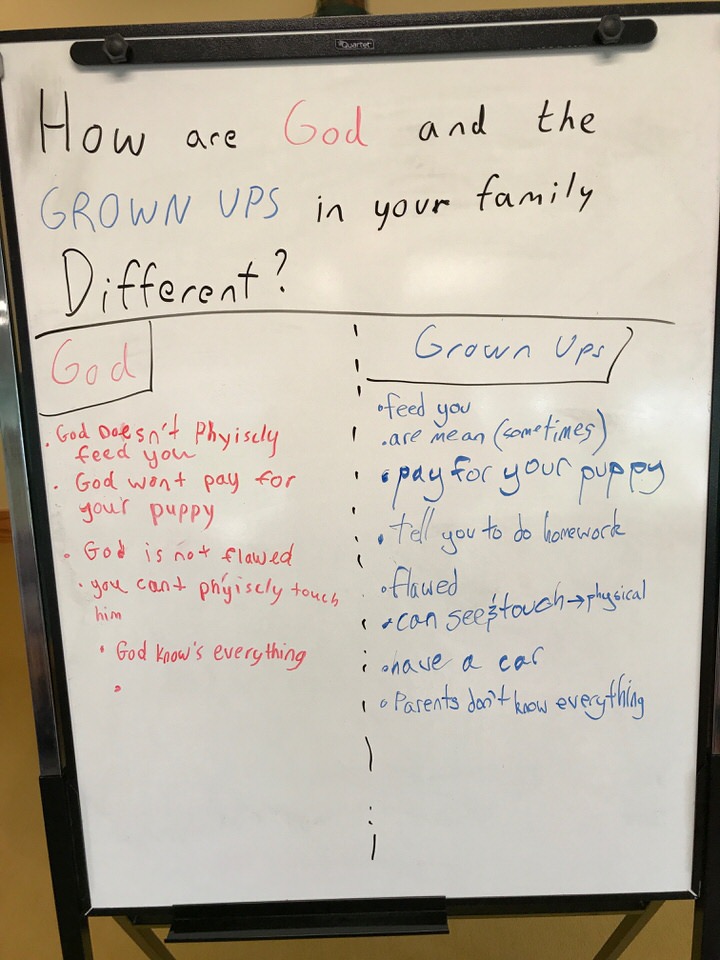 Quartet
How are God and the
GROWN UPS in your family
Different?
God
• God Doesn't Phyisely
feed you
• God wont pay for
your puppy
• God is not flawed
• you cant phyisely touch
him
• God know's everything
•
Grown Ups
• feed you
• are mean (sometimes)
• pay for your puppy
• tell you to do homework
• flawed
• can see & touch → physical
• have a car
• Parents don't know everything